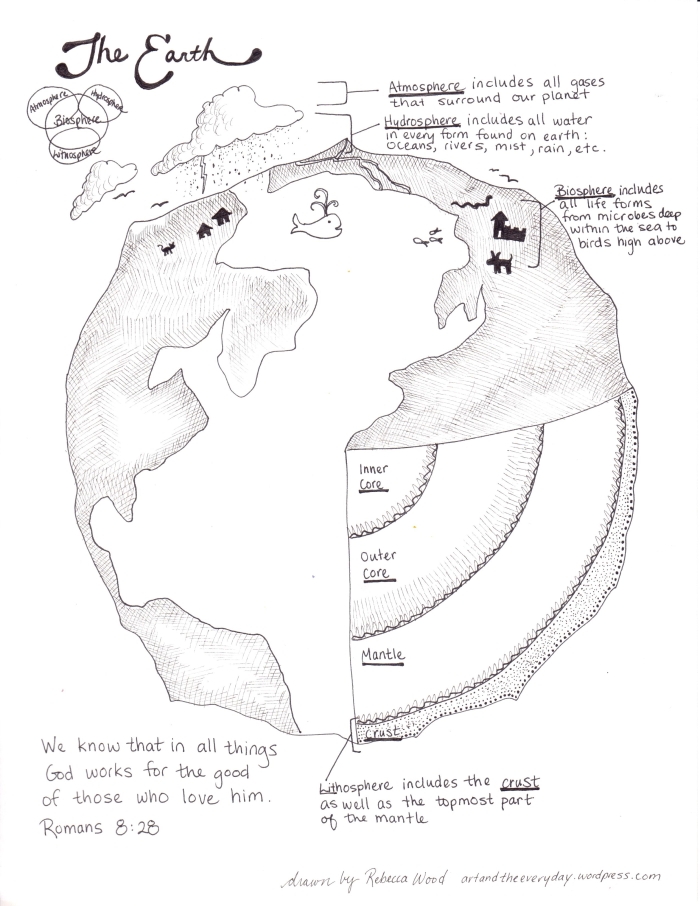 The Earth
Atmosphere
Hydrosphere
Biosphere
Lithosphere
Atmosphere includes all gases
that surround our planet
Hydrosphere includes all water
in every form found on earth:
oceans, rivers, mist, rain, etc.
Biosphere includes
all life forms
from microbes deep
within the sea to
birds high above
Inner
Core
Outer
Core
Mantle
Crust
Lithosphere includes the crust
as well as the topmost part
of the mantle
We know that in all things
God works for the good
of those who love him.
Romans 8:28
drawn by Rebecca Wood artandtheeveryday.wordpress.com